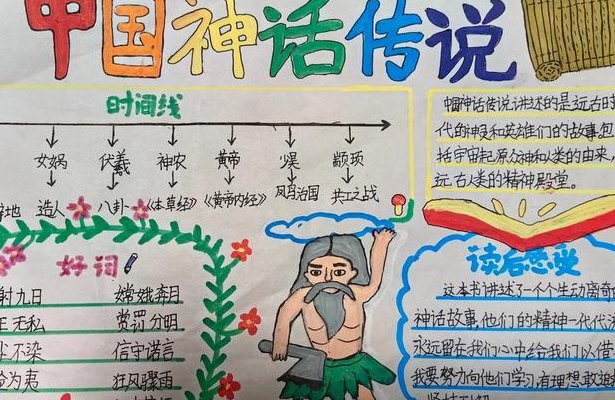 中国神话传说
时间线
女娲 伏羲 神农 黄帝 少昊 颛顼
造人 八卦 《本草经》 《黄帝内经》 凤鸟治国 共工之战
中国神话传说讲述的是远古时
代的神和英雄们的故事,包
括宇宙起源众神和人类的由来,
远古人类的精神殿堂。
好词
射九日 嫦娥奔月
无私 赏罚分明
尘不染 信守诺言
为夷 狂风骤雨
读后感受
这本书讲述了一个个生动离奇
神话故事,他们的精神一代代
永远留在我们心中给我们以借
我要努力向他们学习,有理想敢追